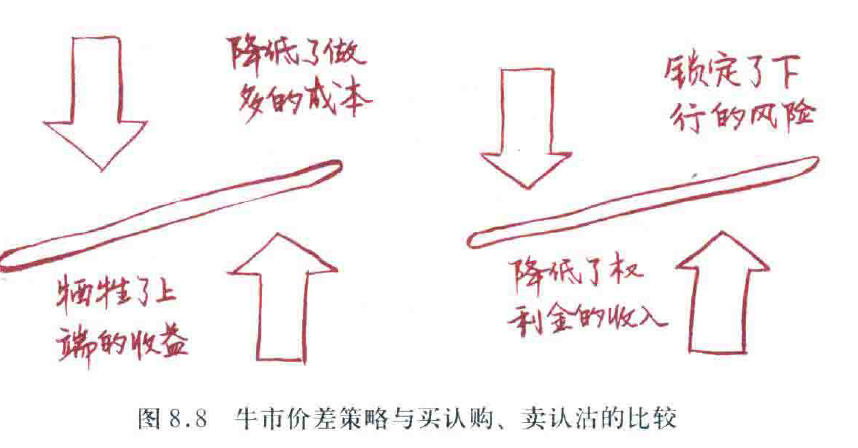 降低了做
多的成本
牺牲了上
端的收益
锁定了下
行的风险
降低了权
利金的收入
图8.8 牛市价差策略与买认购、卖认沽的比较